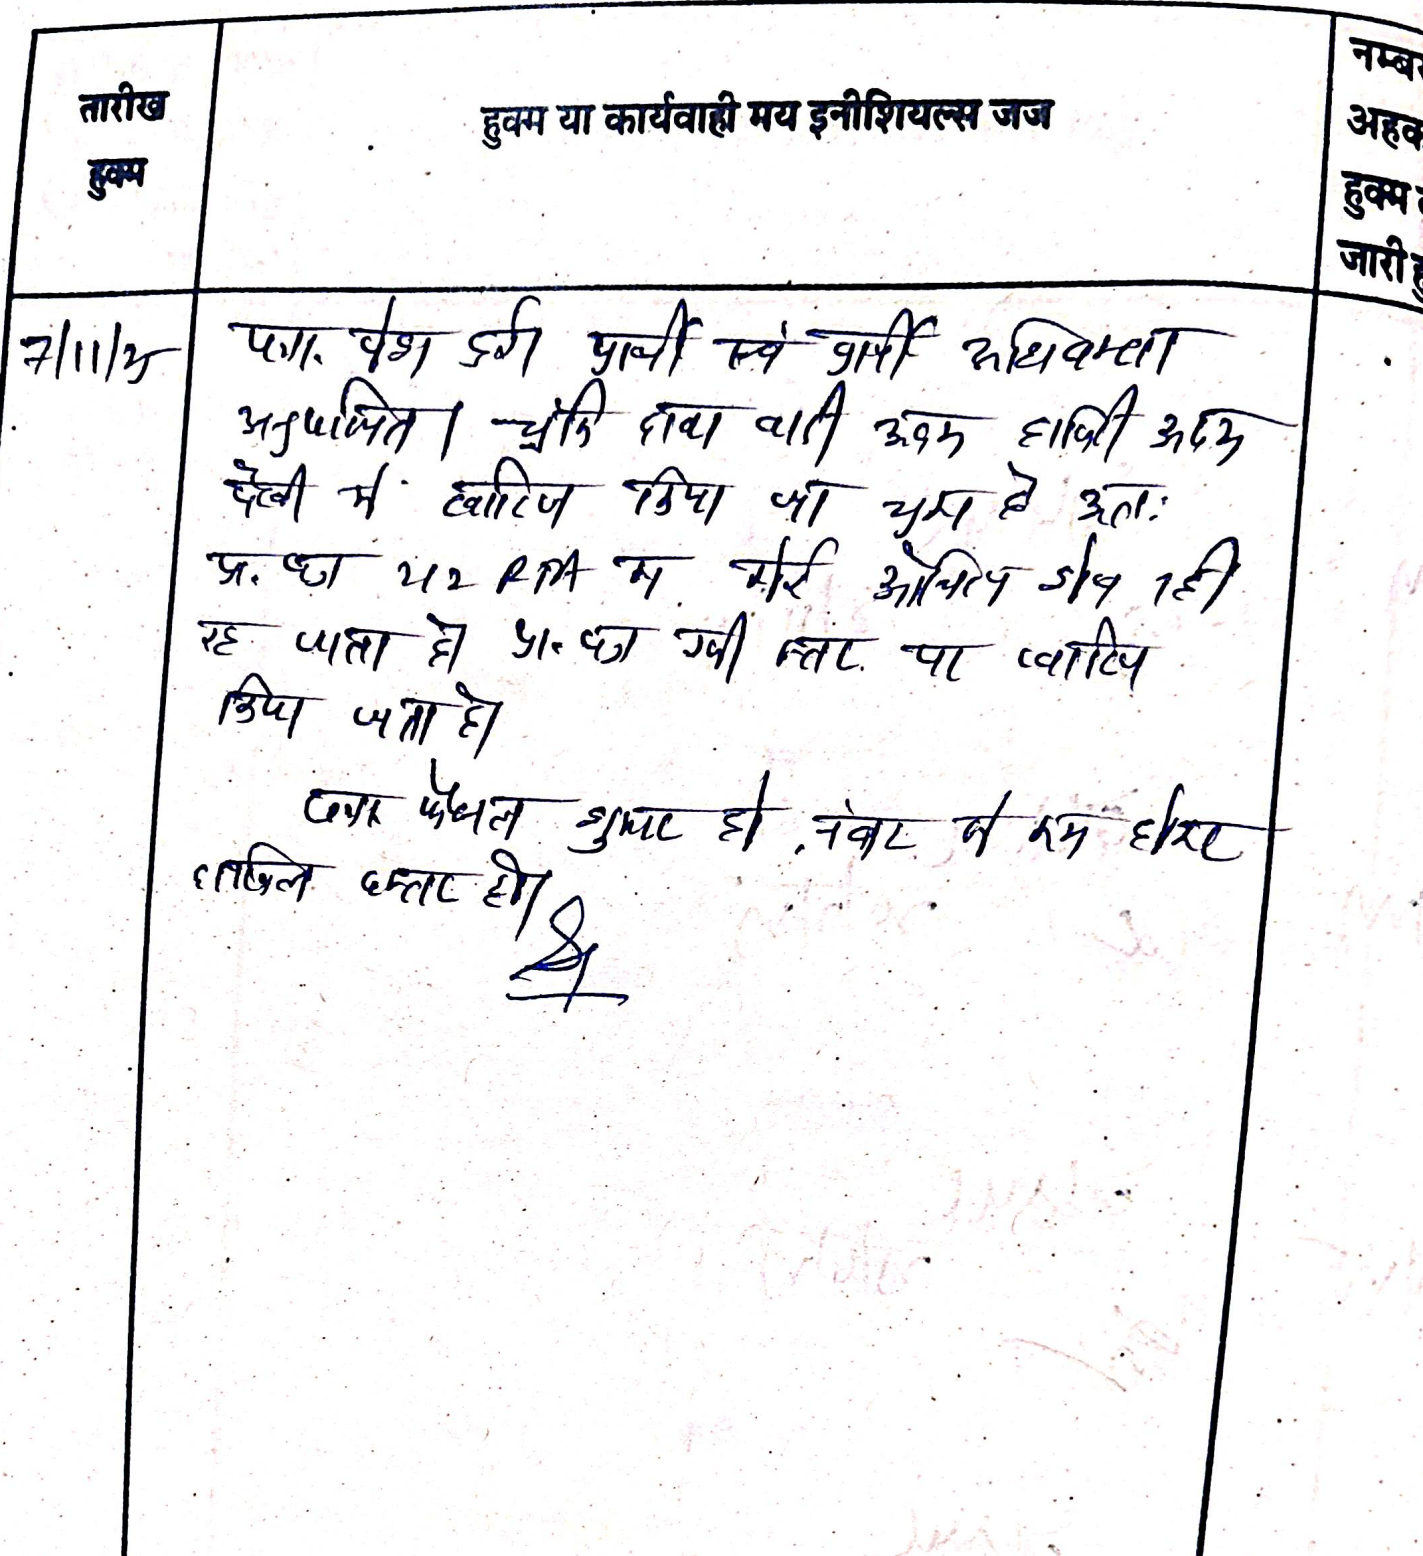 तारीख
हुक्म
हुक्म या कार्यवाही मय इनीशियल्स जज
नम्बर
अहक
हुक्म
जारी हु
7/11/25
पत्रा. पेश हुई। प्रार्थी एवं प्रार्थी अधिवक्ता
अनुपस्थित। चूंकि दावा वादी अदम हाजिरी अदम
पैरवी में खारिज किया जा चुका है अतः
प्रा. पत्र 212 RTA का कोई औचित्य शेष नहीं
रह जाता है। प्रा. पत्र इसी स्तर पर खारिज
किया जाता है।
पत्रा फैसल शुमार हो नंबर से कम होकर
दाखिल दफ्तर हो।